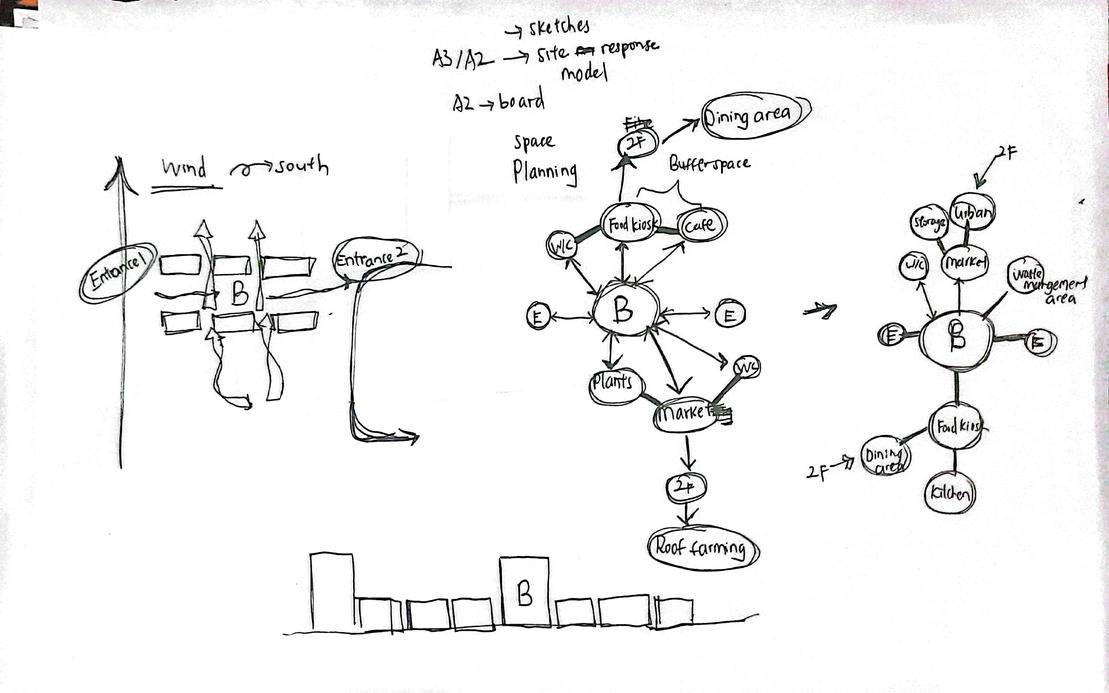 → sketches
A3/A2 → site response
model
A2 → board
space
Planning
Wind → south
Entrance 1
Entrance 2
B
2F
Dining area
Bufferspace
Food kiosk
Cafe
W/C
B
E
E
Plants
WC
Market
2F
Roof farming
B
2F
Storage
Urban
W/C
Market
Waste
mangement
area
E
B
E
Food kiosk
2F → Dining
area
Kitchen